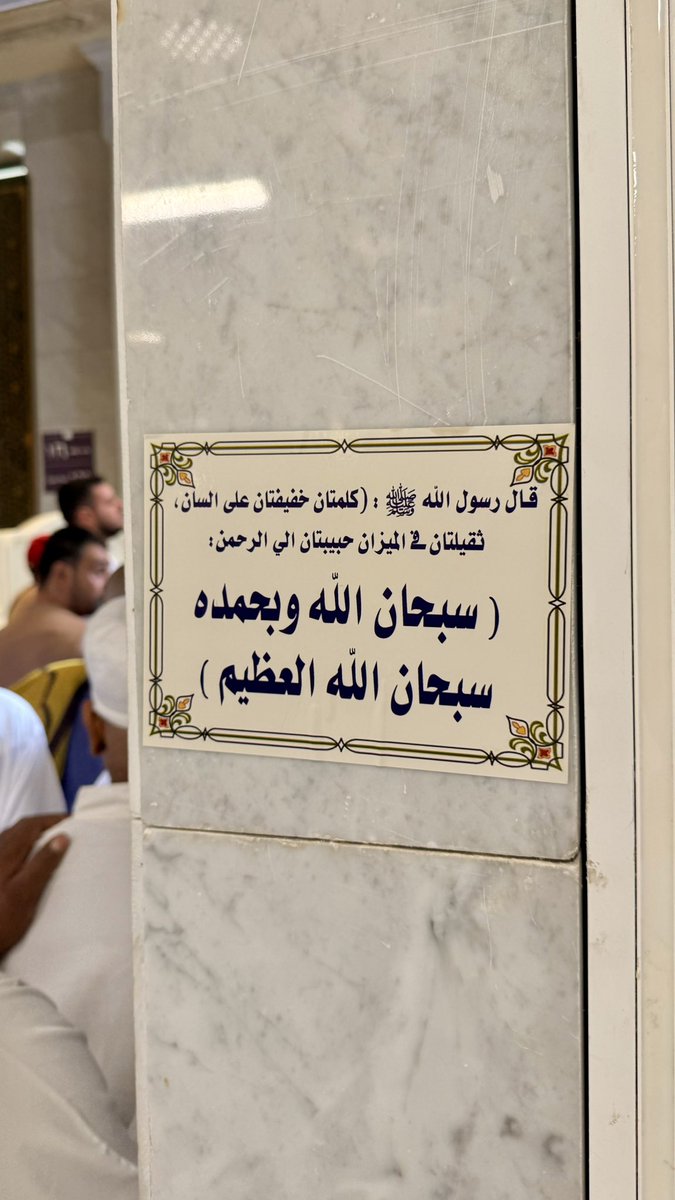 قال رسول الله ﷺ : (كلمتان خفيفتان على السان،
ثقيلتان في الميزان حبيبتان الي الرحمن :
( سبحان الله وبحمده
سبحان الله العظيم )